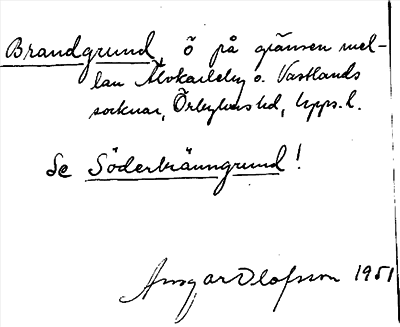 Brandgrund, ö på gränsen mel-
lan Älvkarleby o. Västlands
socknar, Örbyhus hd, Upps. l.
Se Söderbränngrund!
Ansgar Olofsson 1951